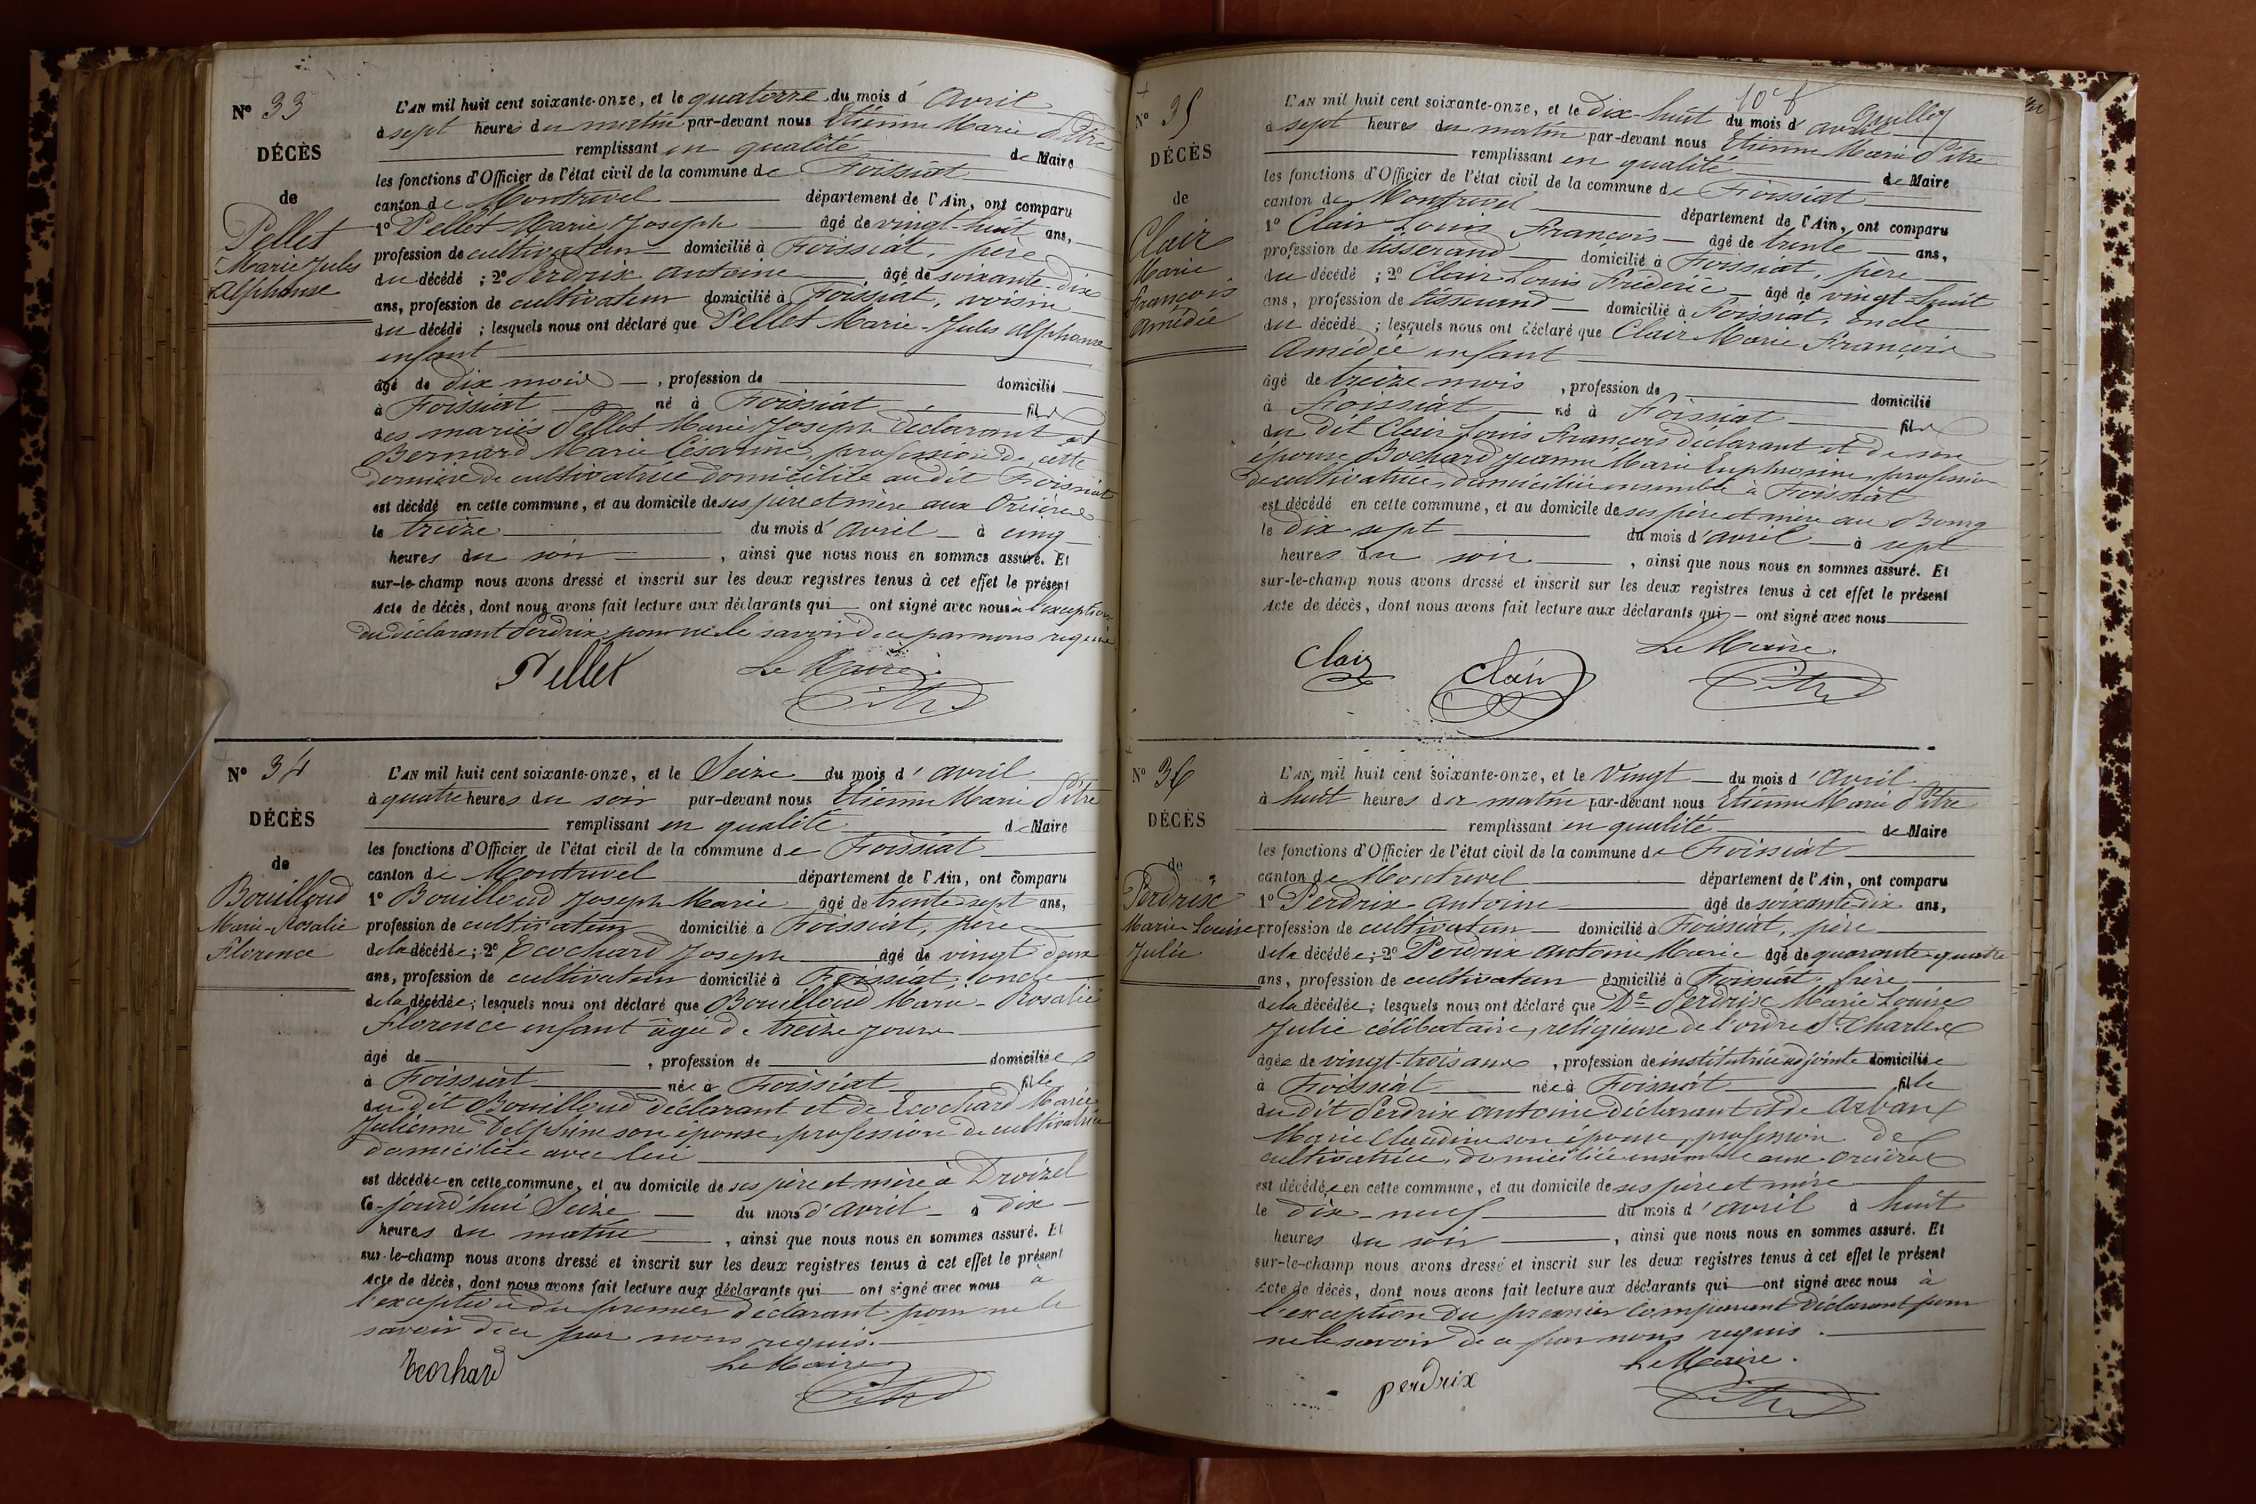 N° 33
DÉCÈS
de
Pellet
Marie Jules
Alphonse
L'AN mil huit cent soixante-onze, et le quatorze du mois d'Avril
à sept heures du matin par-devant nous Etienne Marie Pitre
remplissant en qualité de Maire
les fonctions d'Officier de l'état civil de la commune de Foissiat
canton de Montrevel département de l'Ain, ont comparu
1° Pellet Marie Joseph âgé de vingt-huit ans,
profession de cultivateur domicilié à Foissiat, père
du décédé ; 2° Perdrix Antoine âgé de soixante-dix
ans, profession de cultivateur domicilié à Foissiat, voisin
du décédé ; lesquels nous ont déclaré que Pellet Marie-Jules Alphonse
enfant
âgé de dix mois, profession de domicilié
à Foissiat né à Foissiat fils
des mariés Pellet Marie Joseph déclarant et
Bernard Marie Césarine, profession de cette
dernière de cultivatrice domiciliée au dit Foissiat
est décédé en cette commune, et au domicile de ses père et mère aux
le treize du mois d'avril à cinq
heures du soir, ainsi que nous nous en sommes assuré. Et
sur-le-champ nous avons dressé et inscrit sur les deux registres tenus à cet effet le présent
Acte de décès, dont nous avons fait lecture aux déclarants qui ont signé avec nous à l'exception
du déclarant Perdrix pour ne le savoir de ce par nous requis
Pellet Le Maire
Pitre
N° 34
DÉCÈS
de
Bouilloud
Marie-Rosalie
Florence
L'AN mil huit cent soixante-onze, et le Seize du mois d'avril
à quatre heures du soir par-devant nous Etienne Marie Pitre
remplissant en qualité de Maire
les fonctions d'Officier de l'état civil de la commune de Foissiat
canton de Montrevel département de l'Ain, ont comparu
1° Bouilloud Joseph Marie âgé de trente-sept ans,
profession de cultivateur domicilié à Foissiat, père
de la décédée ; 2° Ecochard Joseph âgé de vingt deux
ans, profession de cultivateur domicilié à Foissiat, oncle
de la décédée ; lesquels nous ont déclaré que Bouilloud Marie-Rosalie
Florence enfant âgée de treize jours
âgé de , profession de domiciliée
à Foissiat née à Foissiat fille
du dit Bouilloud déclarant et de Ecochard Marie
Julienne Delphine son épouse, profession de cultivatrice
domiciliée avec lui
est décédée en cette commune, et au domicile de ses père et mère à Droizel
Ce-jourd'hui Seize du mois d'avril à dix
heures du matin, ainsi que nous nous en sommes assuré. Et
sur-le-champ nous avons dressé et inscrit sur les deux registres tenus à cet effet le présent
Acte de décès, dont nous avons fait lecture aux déclarants qui ont signé avec nous à
l'exception du premier déclarant pour ne le
savoir de ce par nous requis.
Ecochard Le Maire
Pitre
10e f
N° 35
DÉCÈS
de
Clair
Marie
François
Amédée
L'AN mil huit cent soixante-onze, et le Dix-huit du mois d'avril
à sept heures du matin par-devant nous Etienne Marie Pitre
remplissant en qualité de Maire
les fonctions d'Officier de l'état civil de la commune de Foissiat
canton de Montrevel département de l'Ain, ont comparu
1° Clair Louis François âgé de trente ans,
profession de tisserand domicilié à Foissiat, père
du décédé ; 2° Clair Louis Fréderic âgé de vingt-huit
ans, profession de tisserand domicilié à Foissiat, oncle
du décédé ; lesquels nous ont déclaré que Clair Marie François
Amédée enfant
âgé de treize mois, profession de domicilié
à Foissiat né à Foissiat fils
du dit Clair Louis François déclarant et de son
épouse Bochard Jeanne Marie Euphrosine, profession
de cultivatrice, domiciliée ensemble à Foissiat
est décédé en cette commune, et au domicile de ses père et mère au Bourg
le dix sept du mois d'avril à sept
heures du soir, ainsi que nous nous en sommes assuré. Et
sur-le-champ nous avons dressé et inscrit sur les deux registres tenus à cet effet le présent
Acte de décès, dont nous avons fait lecture aux déclarants qui ont signé avec nous
Le Maire.
Clair Clair Pitre
N° 36
DÉCÈS
de
Perdrix
Marie-Louise
Julie
L'AN mil huit cent soixante-onze, et le Vingt du mois d'avril
à huit heures du matin par-devant nous Etienne Marie Pitre
remplissant en qualité de Maire
les fonctions d'Officier de l'état civil de la commune de Foissiat
canton de Montrevel département de l'Ain, ont comparu
1° Perdrix Antoine âgé de soixante-dix ans,
profession de cultivateur domicilié à Foissiat, père
de la décédée ; 2° Perdrix Antoine Marie âgé de quarante-quatre
ans, profession de cultivateur domicilié à Foissiat, frère
de la décédée ; lesquels nous ont déclaré que De Perdrix Marie Louise
Julie célibataire, religieuse de l'ordre St Charles
âgée de vingt-trois ans, profession de institutrice adjointe domiciliée
à Foissiat née à Foissiat fille
du dit Perdrix Antoine déclarant et de Arban
Marie Claudine son épouse, profession de
cultivatrice, domiciliée ensemble aux
est décédée en cette commune, et au domicile de ses père et mère
le dix-neuf du mois d'avril à huit
heures du soir, ainsi que nous nous en sommes assuré. Et
sur-le-champ nous avons dressé et inscrit sur les deux registres tenus à cet effet le présent
Acte de décès, dont nous avons fait lecture aux déclarants qui ont signé avec nous à
l'exception du premier comparant déclarant pour
ne le savoir de ce par nous requis.
Le Maire.
perdrix Pitre